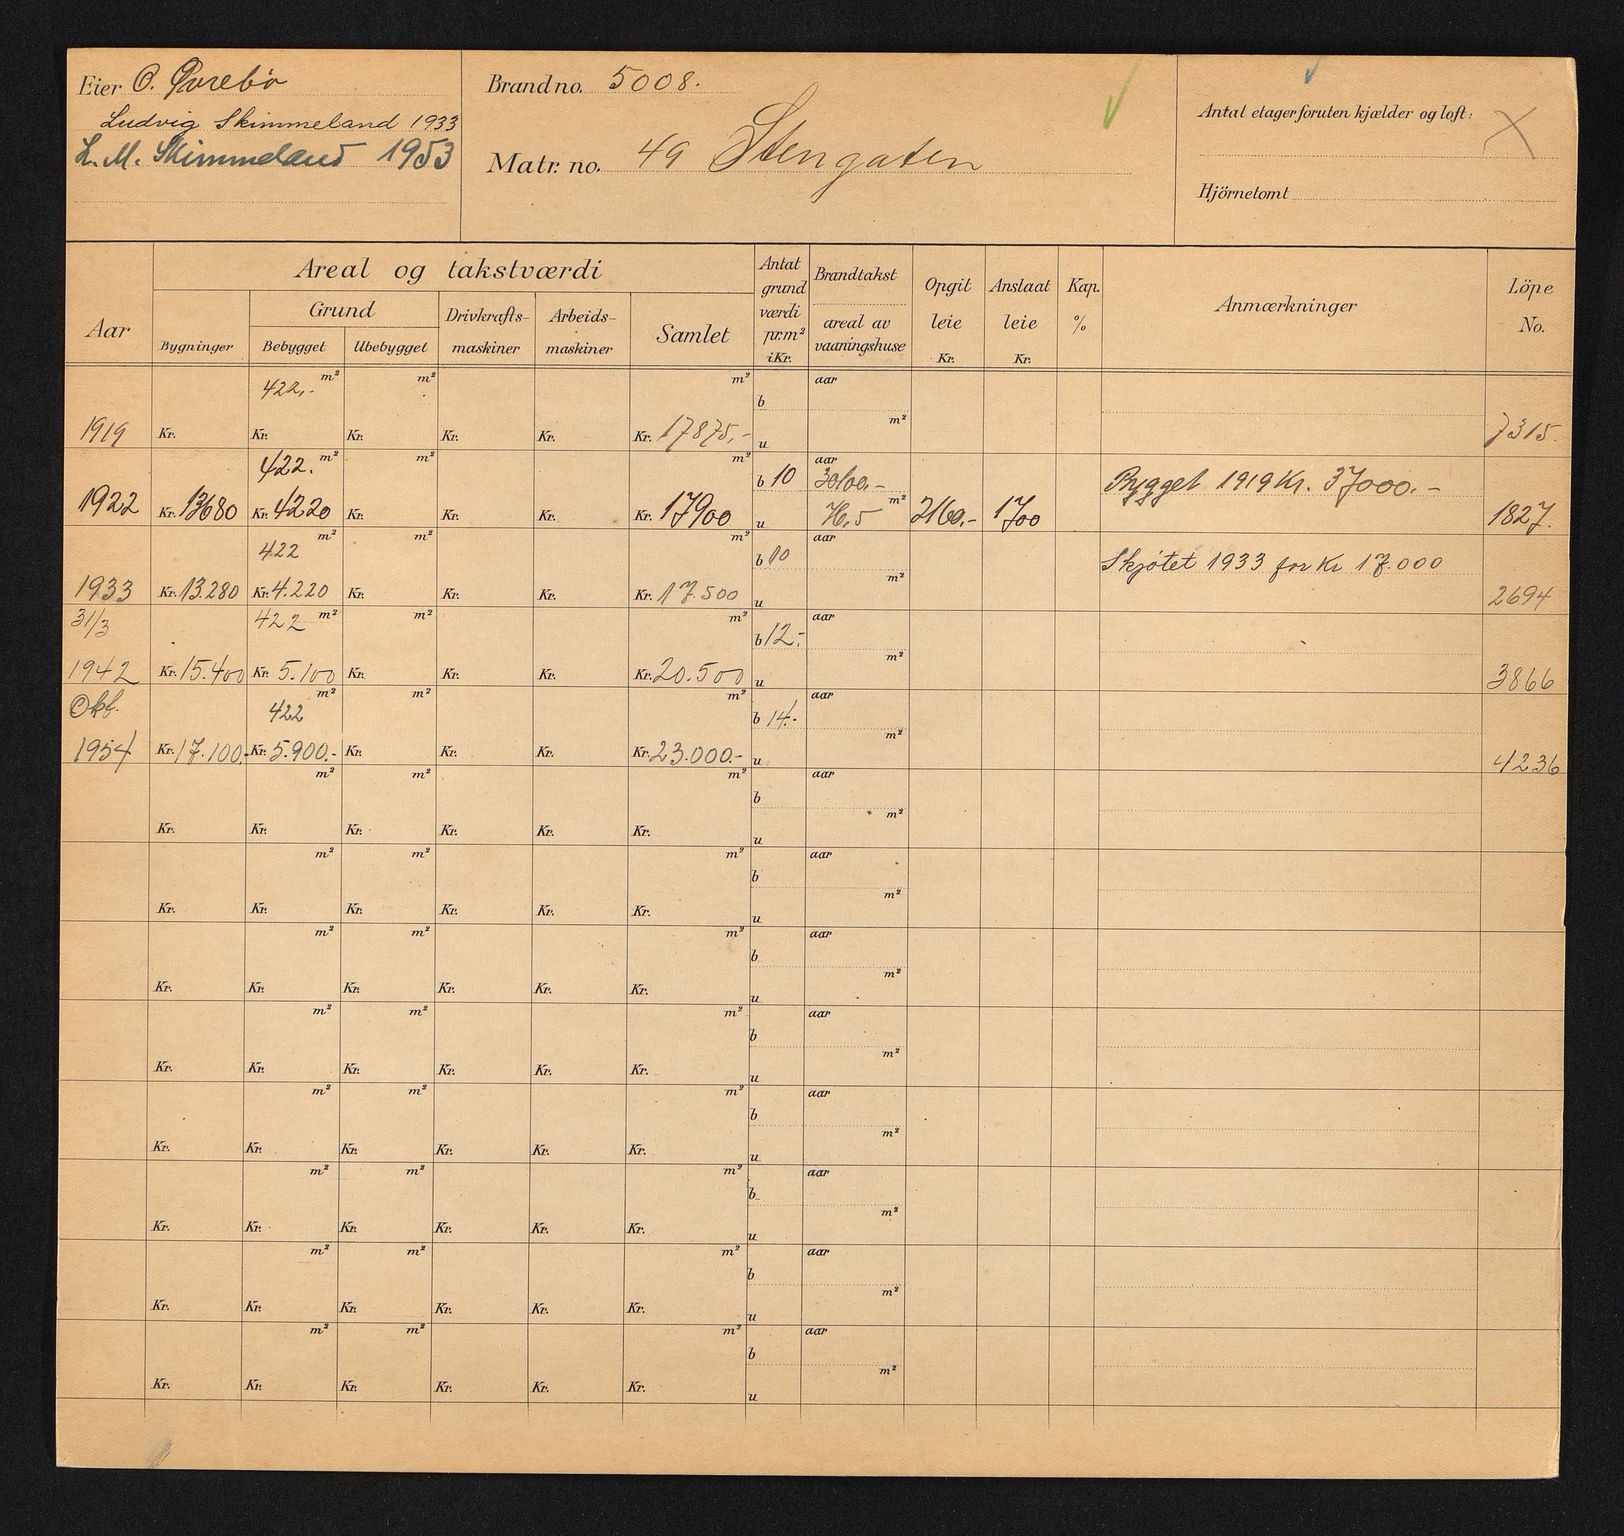 Eier O. Øvrebø
Ludvig Skimmeland 1933
L. M. Skimmeland 1953
Brand no. 5008.
Matr. no. 49 Stengaten
Antal etager foruten kjælder og loft:
Hjörnetomt
Aar
Areal og takstværdi
Grund
Bygninger
Bebygget
Ubebygget
Drivkrafts-
maskiner
Arbeids-
maskiner
Samlet
Antat
grund
værdi
pr. m²
i Kr.
Brandtakst
areal av
vaaningshuse
Opgit
leie
Kr.
Anslaat
leie
Kr.
Kap.
%
Anmærkninger
Löpe
No.
422,- m² m² m² b aar
m²
1919 Kr. Kr. Kr. Kr. Kr. Kr. 17875,- u 7315.
422. m² m² m² b 10 aar Bygget 1919 Kr. 37000.-
m²
1922 Kr. 13680 Kr. 4220 Kr. Kr. Kr. Kr. 17900 u 76,5 2160,- 1700 1827.
422 m² m² m² b 10 aar Skjøtet 1933 for Kr 17.000
m²
1933 Kr. 13.280 Kr. 4.220 Kr. Kr. Kr. Kr. 17.500 u 2694
31/3 422 m² m² m² b 12.- aar
m²
1942 Kr. 15.400 Kr. 5.100 Kr. Kr. Kr. Kr. 20.500 u 3866
Okt. 422 m² m² m² b 14.- aar
m²
1954 Kr. 17.100.- Kr. 5.900.- Kr. Kr. Kr. Kr. 23.000.- u 4236
m² m² m² b aar
m²
Kr. Kr. Kr. Kr. Kr. Kr. u
m² m² m² b aar
m²
Kr. Kr. Kr. Kr. Kr. Kr. u
m² m² m² b aar
m²
Kr. Kr. Kr. Kr. Kr. Kr. u
m² m² m² b aar
m²
Kr. Kr. Kr. Kr. Kr. Kr. u
m² m² m² b aar
m²
Kr. Kr. Kr. Kr. Kr. Kr. u
m² m² m² b aar
m²
Kr. Kr. Kr. Kr. Kr. Kr. u
m² m² m² b aar
m²
Kr. Kr. Kr. Kr. Kr. Kr. u
m² m² m² b aar
m²
Kr. Kr. Kr. Kr. Kr. Kr. u